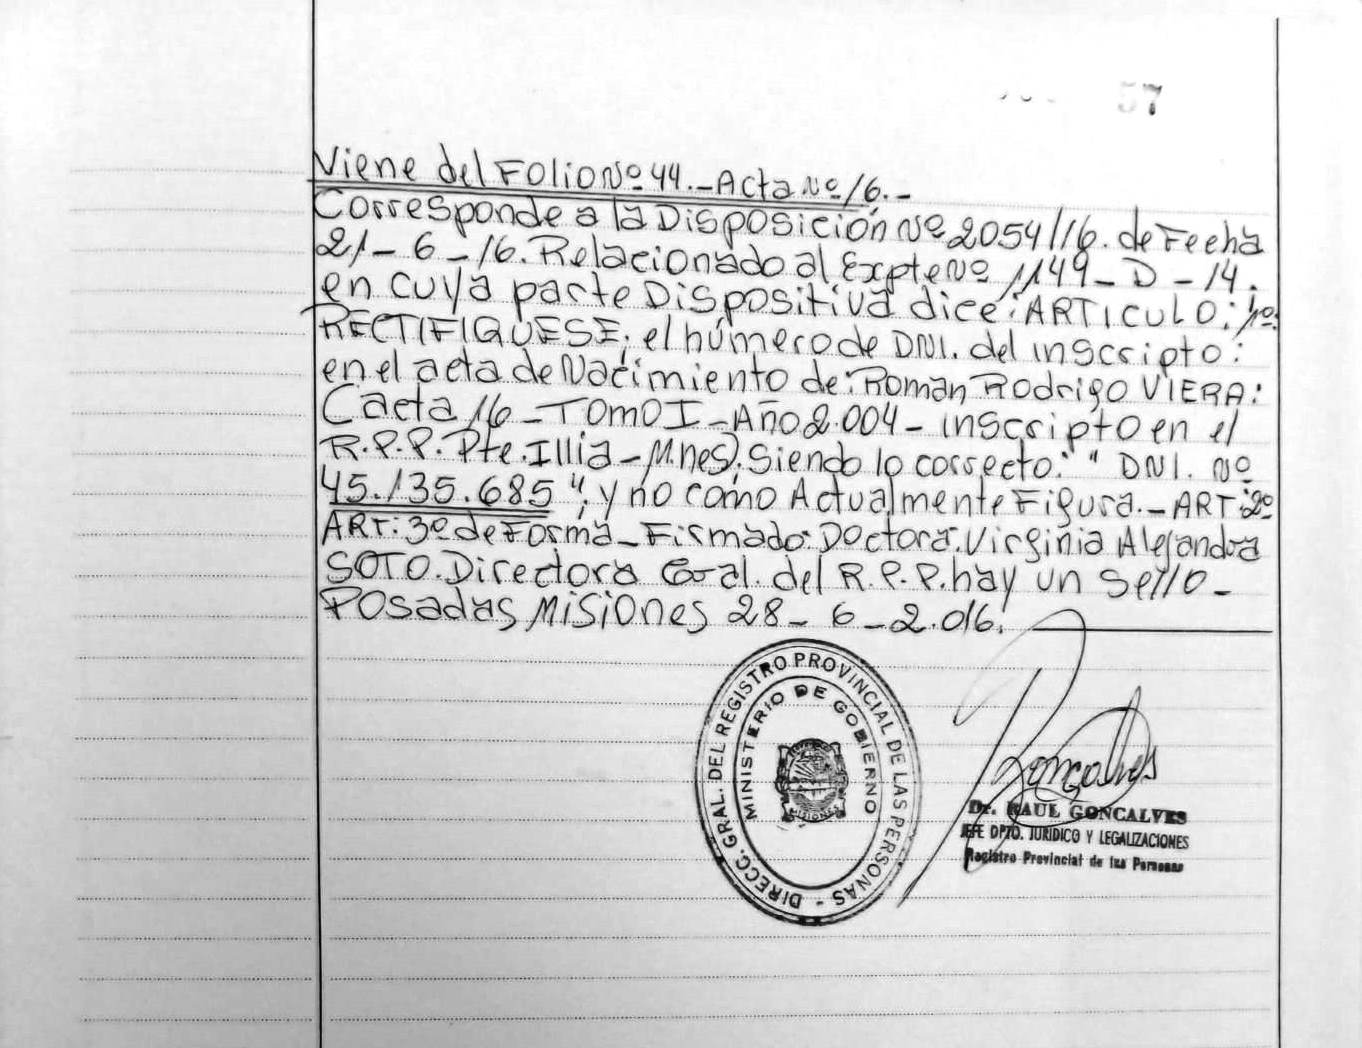 57
Viene del Folio Nº 44.-Acta Nº 16.-
Corresponde a la Disposición Nº 2054/16. de Fecha
21-6-16. Relacionado al Expte Nº 1149-D-14.
en cuya parte Dispositiva dice: ARTICULO: 1º:
RECTIFIQUESE; el número de DNI. del inscripto:
en el acta de Nacimiento de: Roman Rodrigo VIERA:
(acta 16-TOMO I-Año 2.004- inscripto en el
R.P.P. Pte. Illia-Mnes). Siendo lo correcto: "DNI. Nº
45.135.685", y no como Actualmente Figura.-ART:2º
ART:3º de Forma-Firmado: Doctora: Virginia Alejandra
SOTO. Directora Gral. del R.P.P. hay un sello-
Posadas Misiones 28-6-2.016.
DIRECC. GRAL. DEL REGISTRO PROVINCIAL DE LAS PERSONAS -
MINISTERIO DE GOBIERNO
MISIONES
Goncalves
Dr. RAUL GONCALVES
JEFE DPTO. JURIDICO Y LEGALIZACIONES
Registro Provincial de las Personas